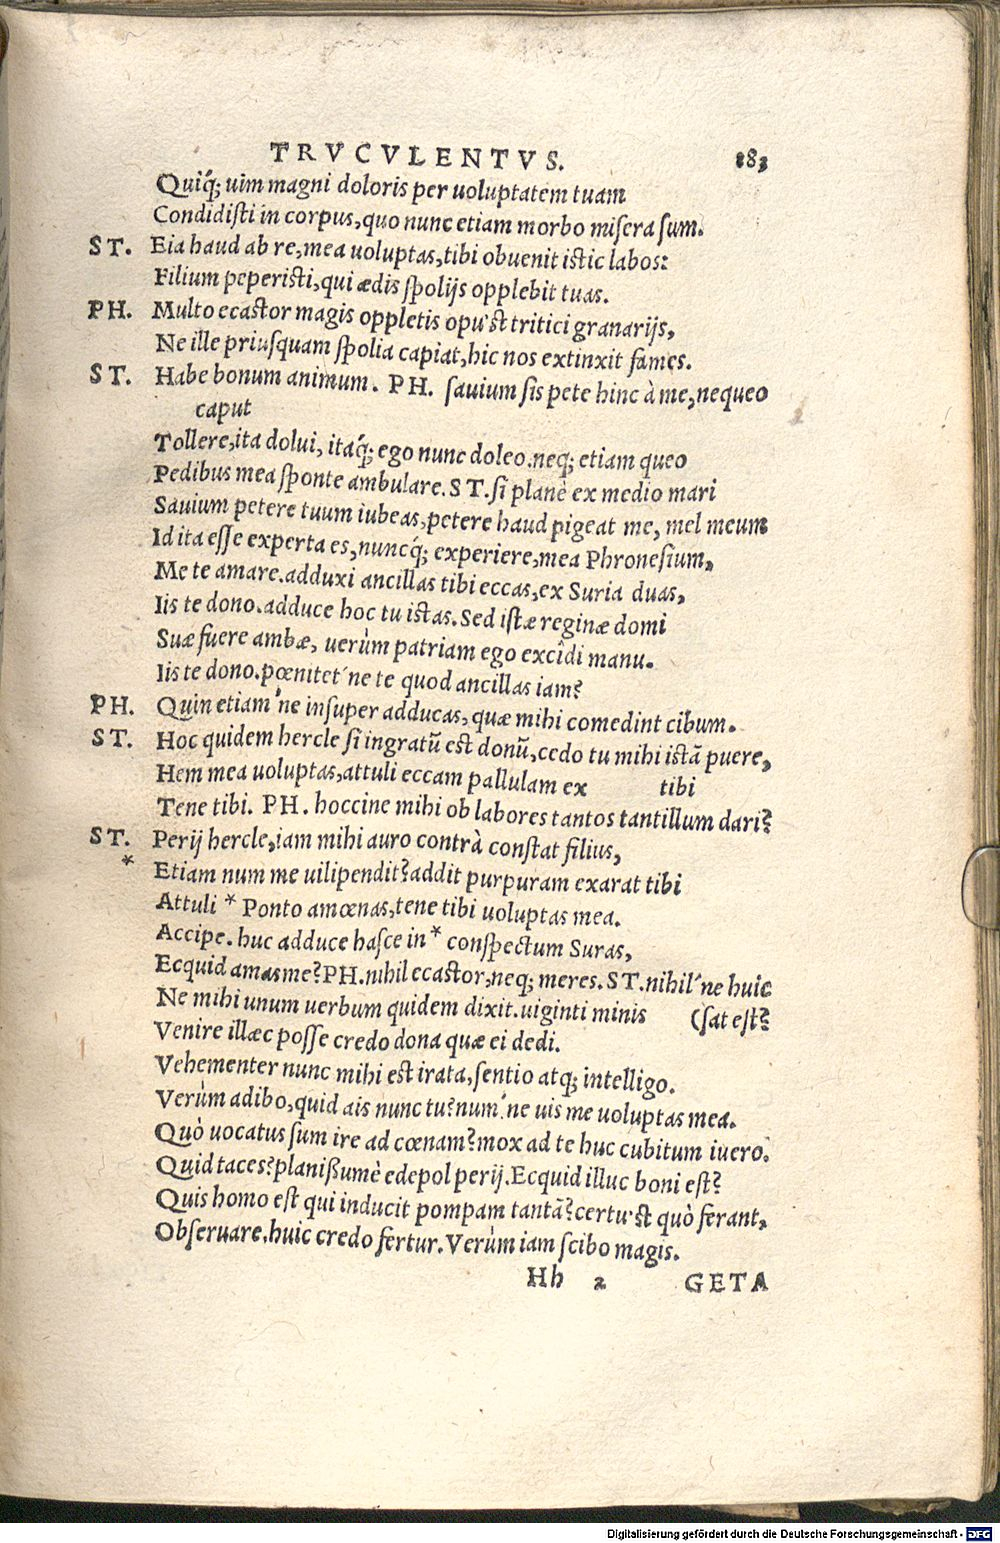 TRVCVLENTVS. 283
Quiq́; uim magni doloris per uoluptatem tuam
Condidisti in corpus, quo nunc etiam morbo misera sum.
ST. Eia haud ab re, mea uoluptas, tibi obuenit istic labos:
Filium peperisti, qui ædis spolijs opplebit tuas.
PH. Multo ecastor magis oppletis opu'st tritici granarijs,
Ne ille priusquam spolia capiat, hic nos extinxit fames.
ST. Habe bonum animum. PH. sauium sis pete hinc à me, nequeo
caput
Tollere, ita dolui, itaq́; ego nunc doleo. neq; etiam queo
Pedibus mea sponte ambulare. ST. si planè ex medio mari
Sauium petere tuum iubeas, petere haud pigeat me, mel meum
Id ita esse experta es, nuncq́; experiere, mea Phronesium,
Me te amare. adduxi ancillas tibi eccas, ex Suria duas,
Iis te dono. adduce hoc tu istas. Sed istæ reginæ domi
Suæ fuere ambæ, uerùm patriam ego excîdi manu.
Iis te dono. pœnitet'ne te quod ancillas iam?
PH. Quin etiam'ne insuper adducas, quæ mihi comedint cibum.
ST. Hoc quidem hercle si ingratū est donū, cedo tu mihi istā puere,
Hem mea uoluptas, attuli eccam pallulam ex tibi
Tene tibi. PH. hoccine mihi ob labores tantos tantillum dari?
ST. Perij hercle, iam mihi auro contrà constat filius,
* Etiam num me uilipendit? addit purpuram exarat tibi
Attuli * Ponto amœnas, tene tibi uoluptas mea.
Accipe. huc adduce hasce in * conspectum Suras,
Ecquid amas me? PH. nihil ecastor, neq; meres. ST. nihil'ne huic
Ne mihi unum uerbum quidem dixit. uiginti minis (sat est?
Venire illæc posse credo dona quæ ei dedi.
Vehementer nunc mihi est irata, sentio atq; intelligo.
Verùm adibo, quid ais nunc tu? num'ne uis me uoluptas mea.
Quò uocatus sum ire ad cœnam? mox ad te huc cubitum iuero.
Quid taces? planißumè edepol perij. Ecquid illuc boni est?
Quis homo est qui inducit pompam tantā? certu'st quò ferant,
Obseruare. huic credo fertur. Verùm iam scibo magis.
Hh 2 GETA
Digitalisierung gefördert durch die Deutsche Forschungsgemeinschaft - DFG